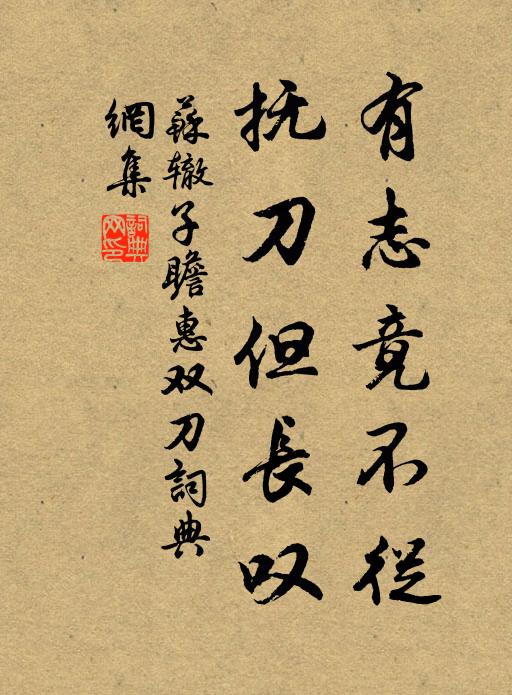 有志竟不從
抚刀但長叹
蘇辙子瞻惠双刀詞典
網集
詞典
网印